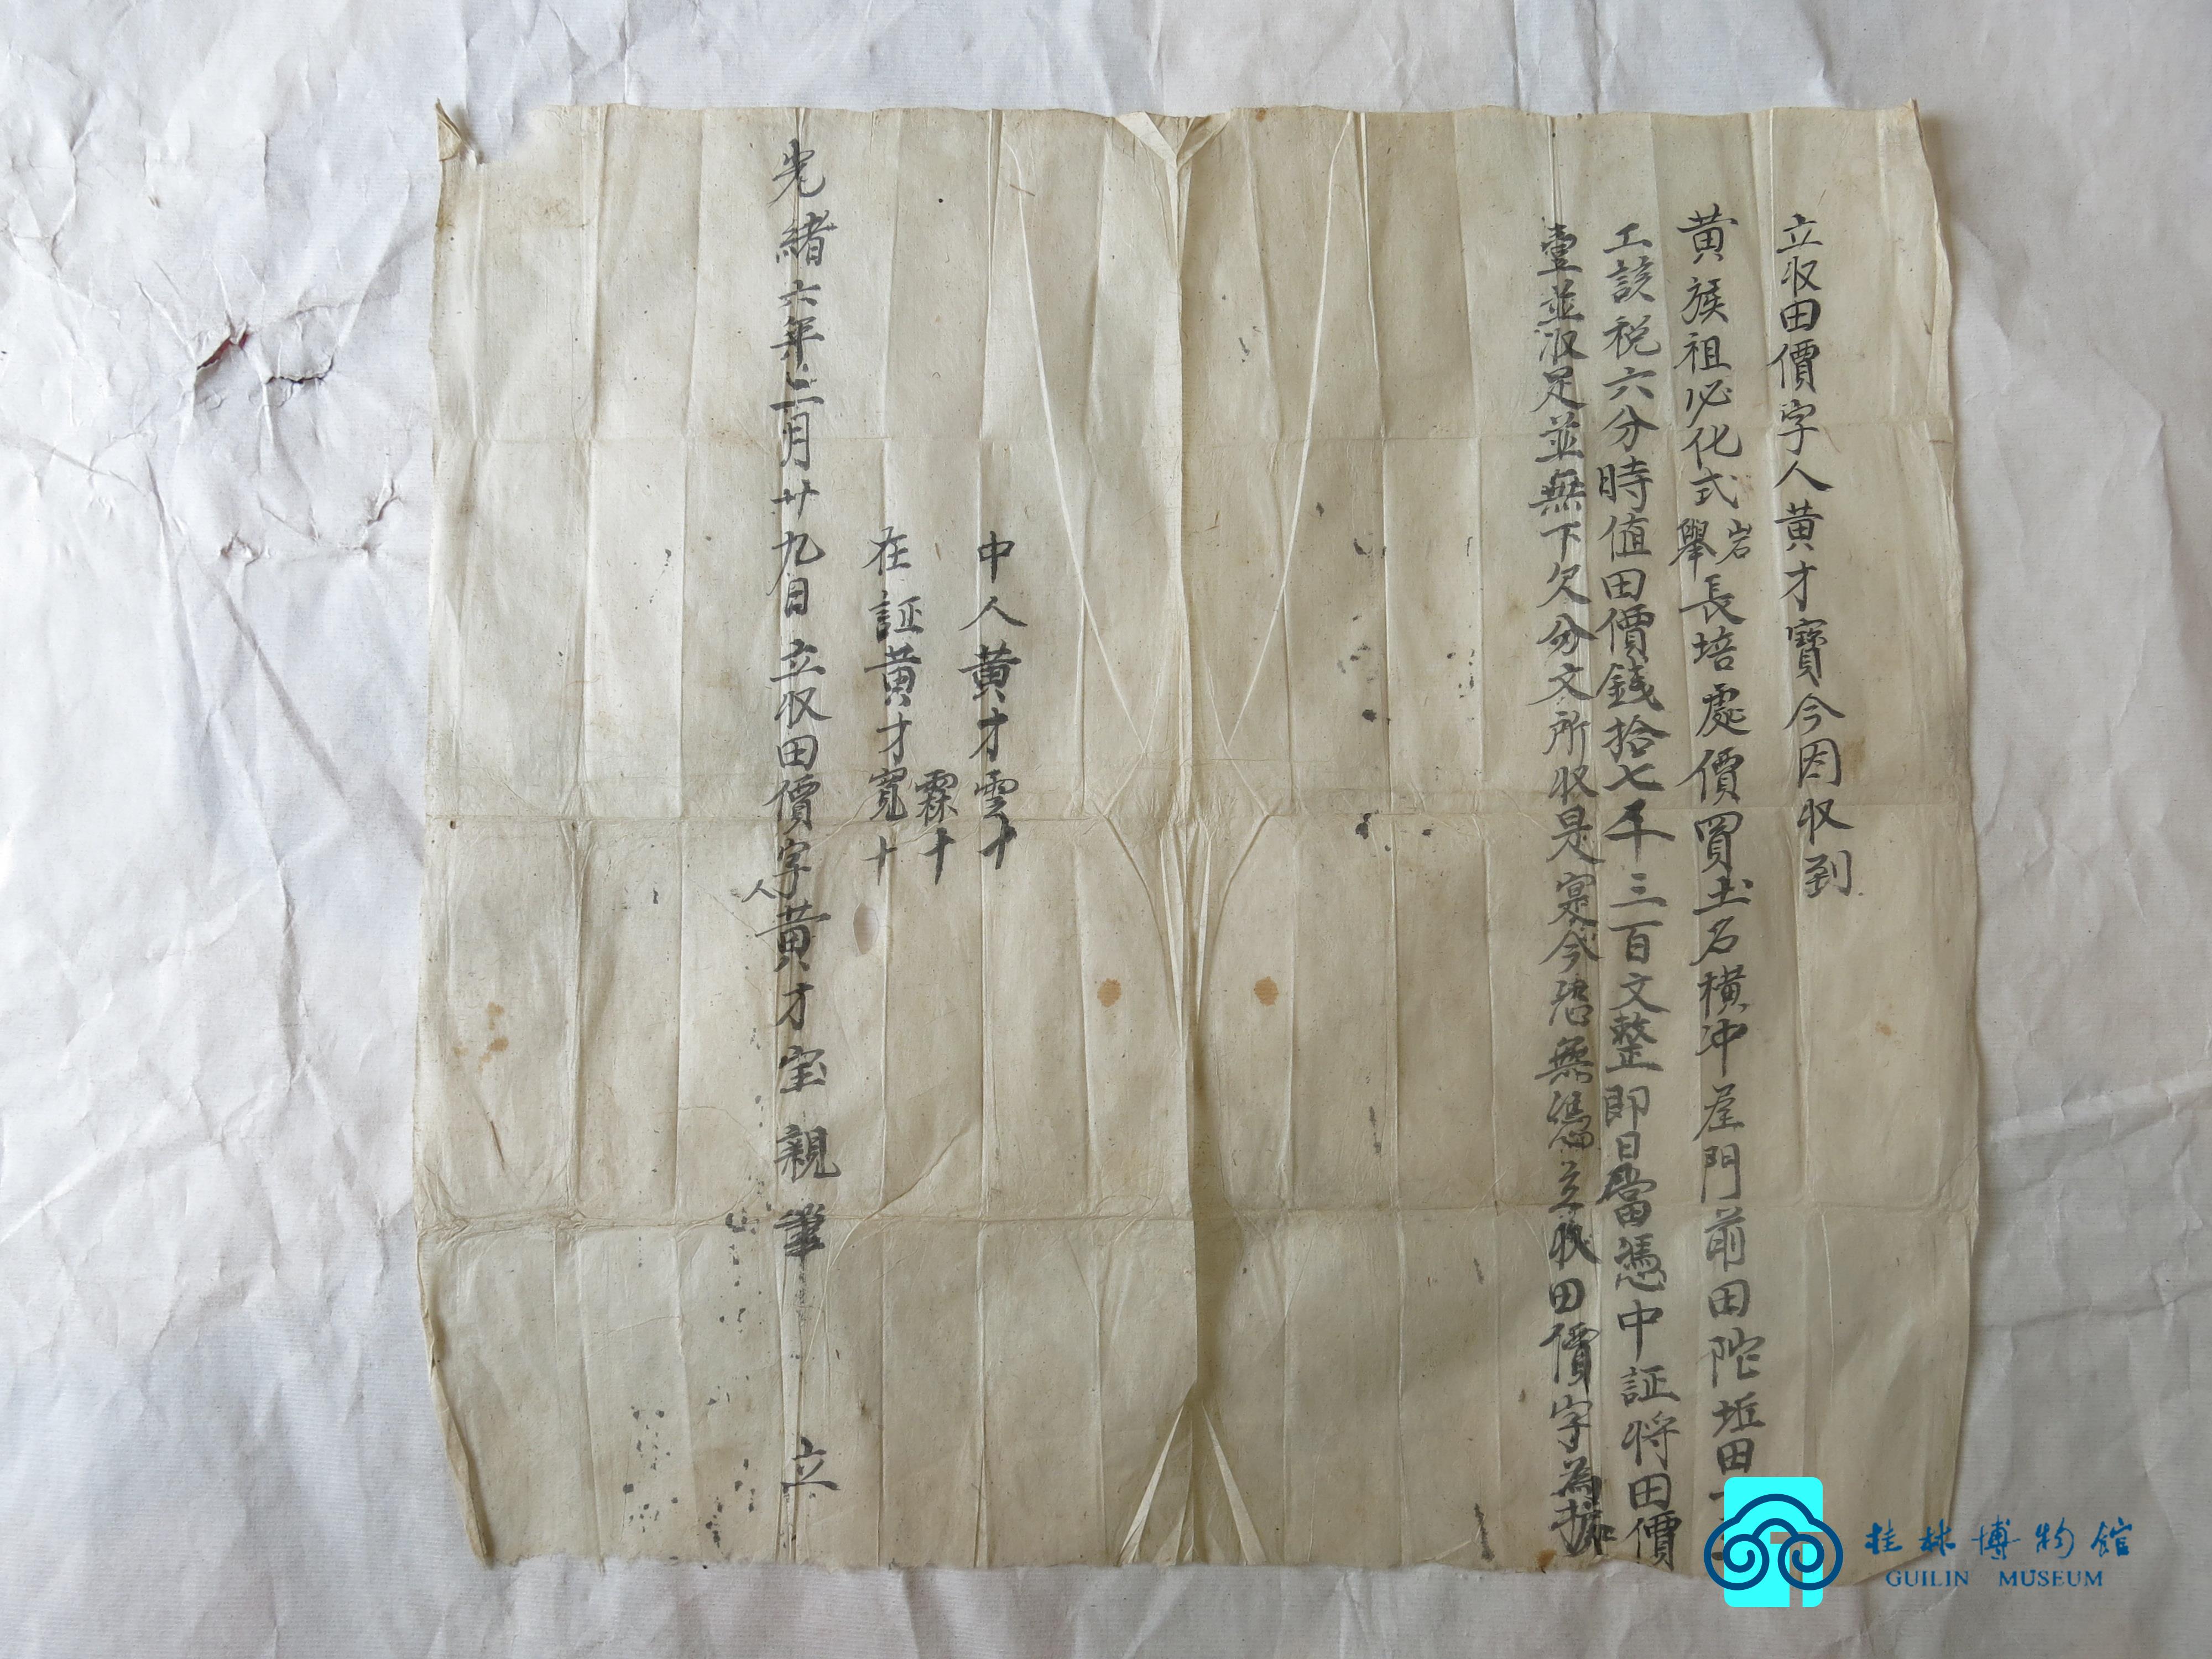 立収田價字人黄才寳今因収到
黄族祖必化式岩舉長培處價買土名横冲屋門前田陀坵田一
工該税六分時值田價錢拾七千三百文整即日當憑中証将田價
壹並収足並無下欠分文所収是寔今恐無憑立収田價字為㨿
中人黄才雲十
霖十
在証黄才寛十
光緒六年二月廿九日立収田價字人黄才宝親筆 立
桂林博物館
GUILIN MUSEUM